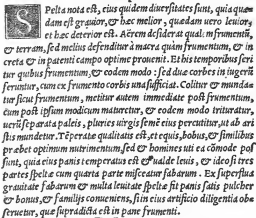 Spelta nota est, eius quidem diuersitates sunt, quia quæ-
dam est grauior, & hæc melior, quædam uero leuior,
et hæc deterior est. Aërem desiderat qualem frumentũ,
& terram, sed melius defenditur à macra quàm frumentum, & in
creta & in patenti campo optime prouenit. Et his temporibus seri
tur quibus frumentum, & eodem modo: sed duæ corbes in iugerũ
seruntur, cum ex frumento corbis una sufficiat. Colitur & munda-
tur sicut frumentum, metitur autem immediate post frumentum,
cum post ipsum modicum maturetur, & eodem modo trituratur,
uerũ separata paleis, pluries uirgis semẽ eius percutitur, ut ab ari
stis mundetur. Tẽperatæ qualitatis est, et equis, bobus, & similibus
præbet optimum nutrimentum, sed & homines uti ea cõmode pos
sunt, quia eius panis temperatus est & ualde leuis, & ideo si tres
partes speltæ cum quarta parte misceatur fabarum. Ex superflua
grauitate fabarum & multa leuitate speltæ fit panis satis pulcher
& bonus, & familijs conueniens, si in eius artificio diligentia ob-
seruetur, quæ supradicta est in pane frumenti.